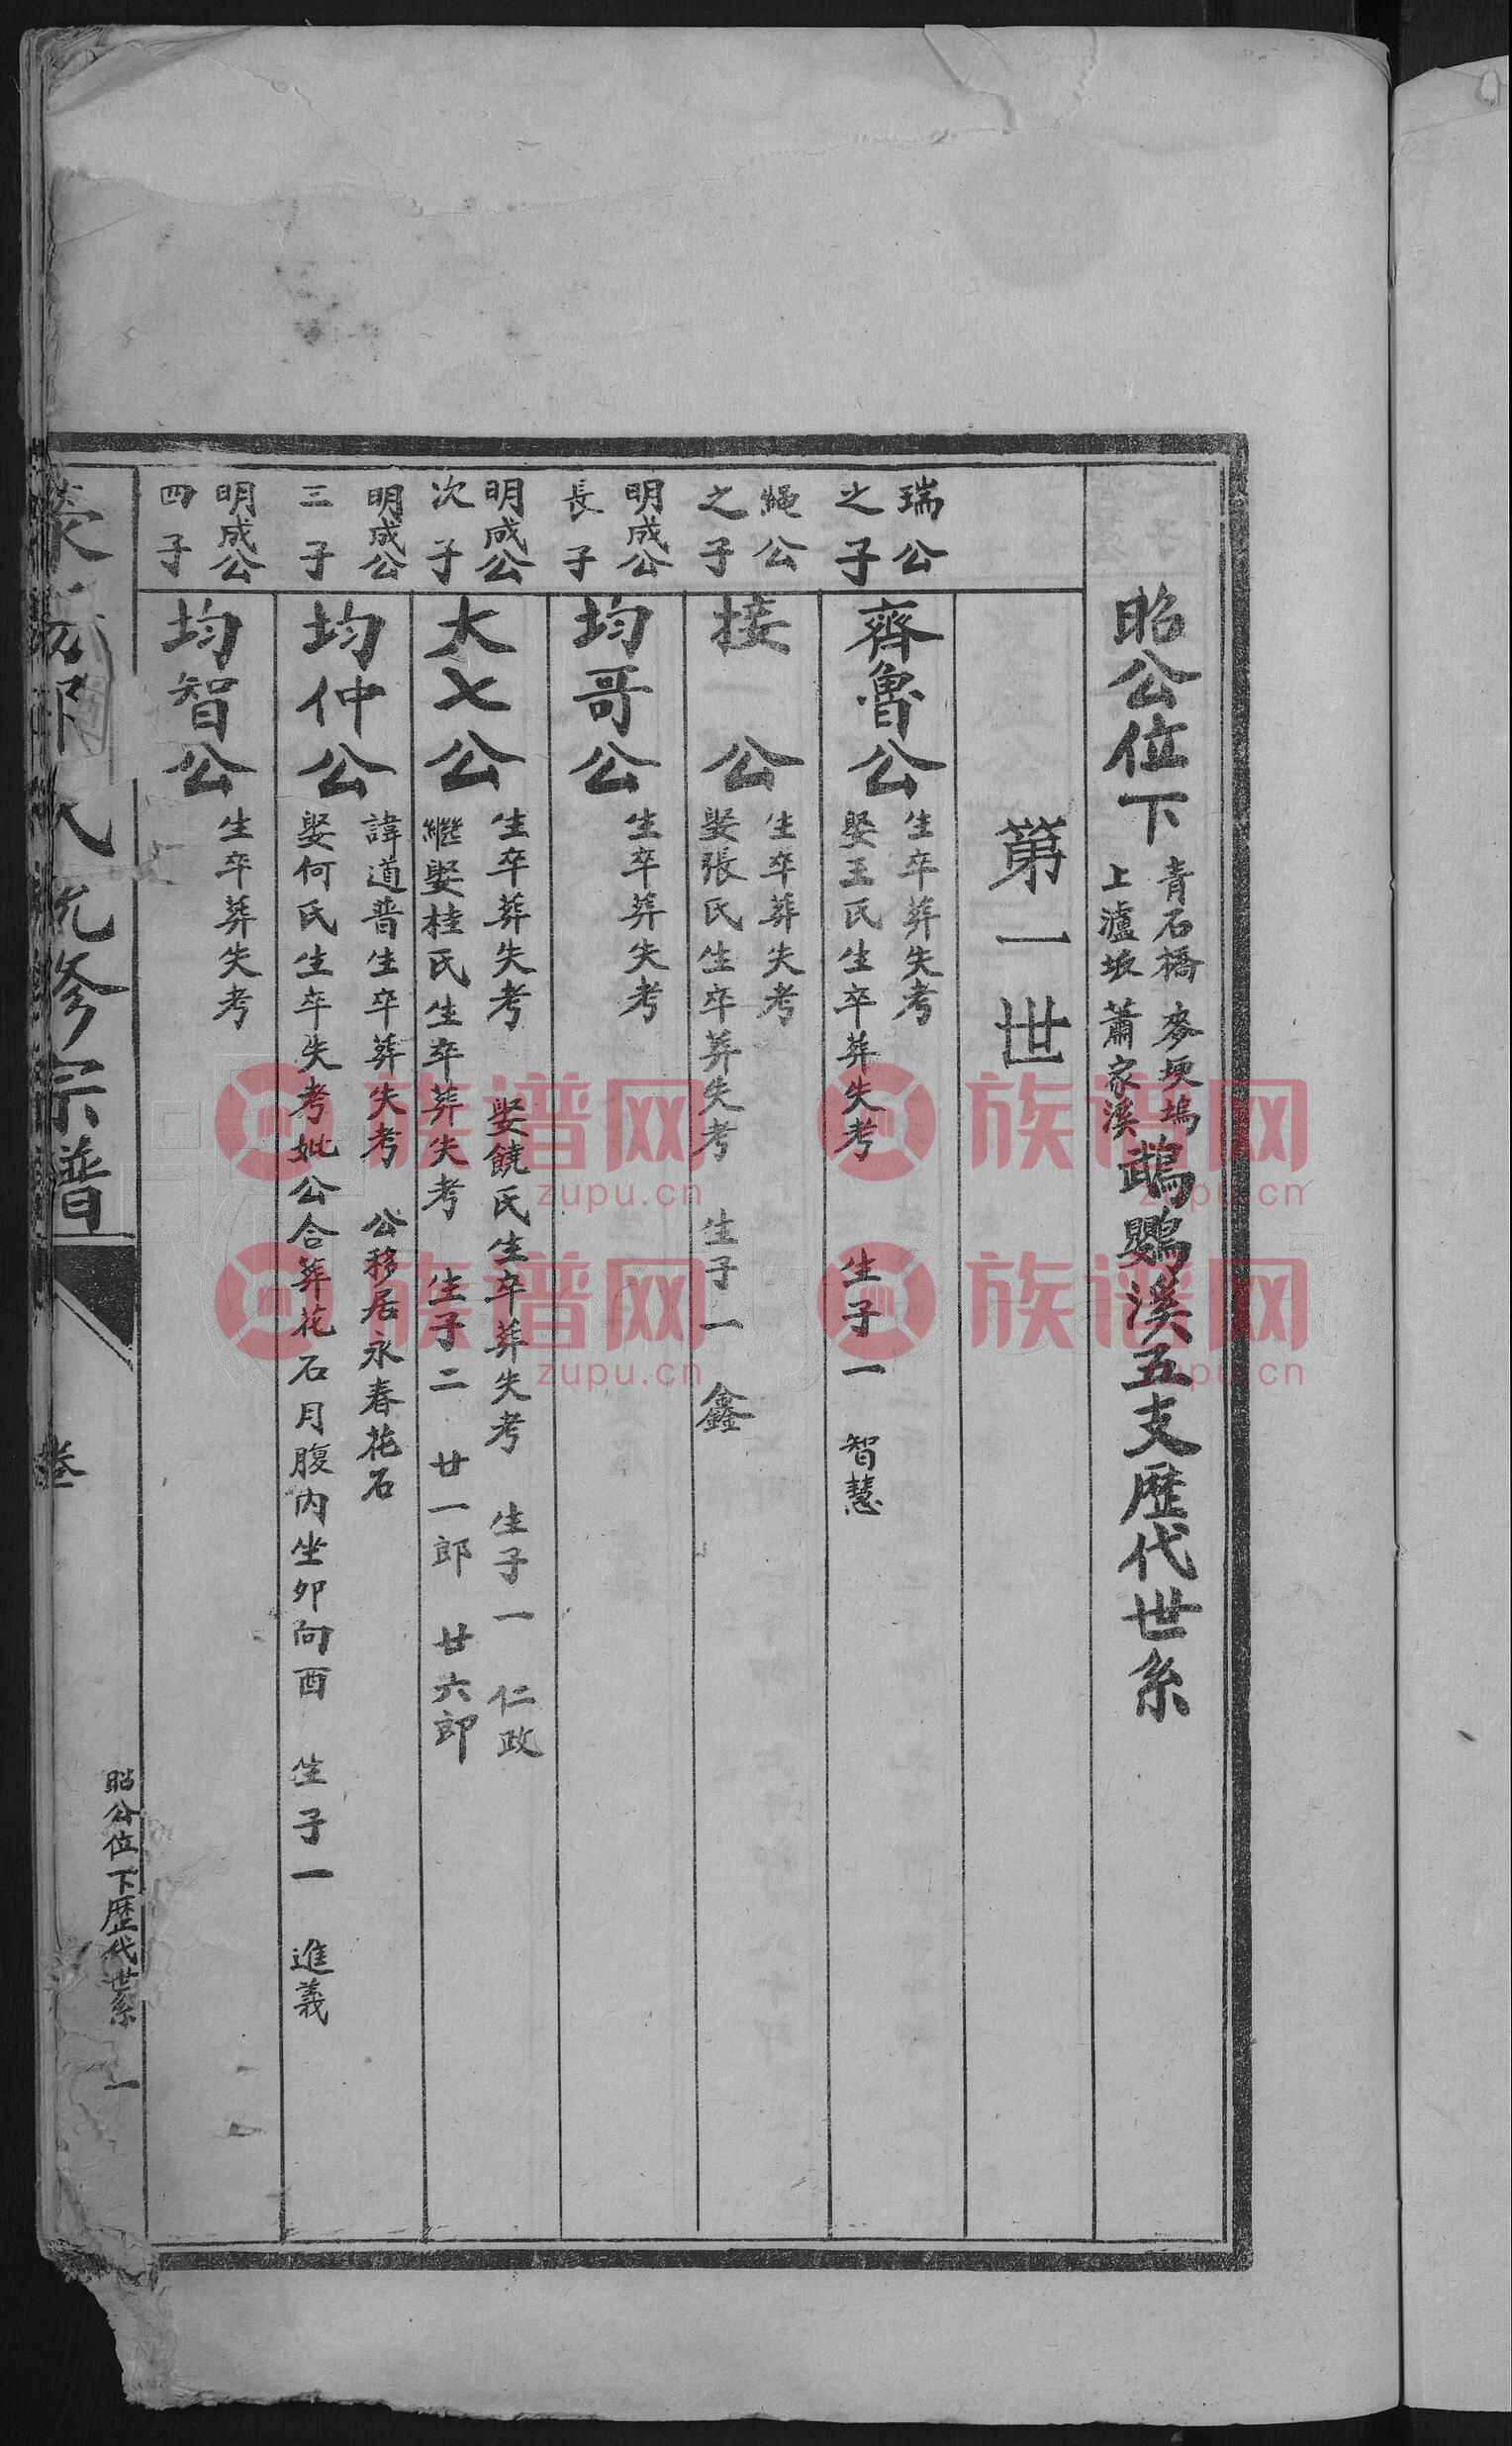 昭公位下
青石橋 麥埂塢
上瀘坂 蕭家溪
鵡鸚溪五支歴代世系
第一世
瑞公
之子
齊魯公
生卒葬失考
娶王氏生卒葬失考 生子一 智慧
繩公
之子
接一公
生卒葬失考
娶張氏生卒葬失考 生子一 鑫
明成公
長子
均哥公
生卒葬失考
明成公
次子
大七公
生卒葬失考 娶饒氏生卒葬失考 生子一 仁政
繼娶桂氏生卒葬失考 生子二 廿一郎 廿六郎
明成公
三子
均仲公
諱道普生卒葬失考 公移居永春花石
娶何氏生卒失考妣公合葬花石月腹內坐卯向酉 生子一 進義
明成公
四子
均智公
生卒葬失考
氏 修宗譜
卷
昭公位下歴代世系
一
族谱网
zupu.cn
族谱网
zupu.cn
族谱网
zupu.cn
族谱网
zupu.cn